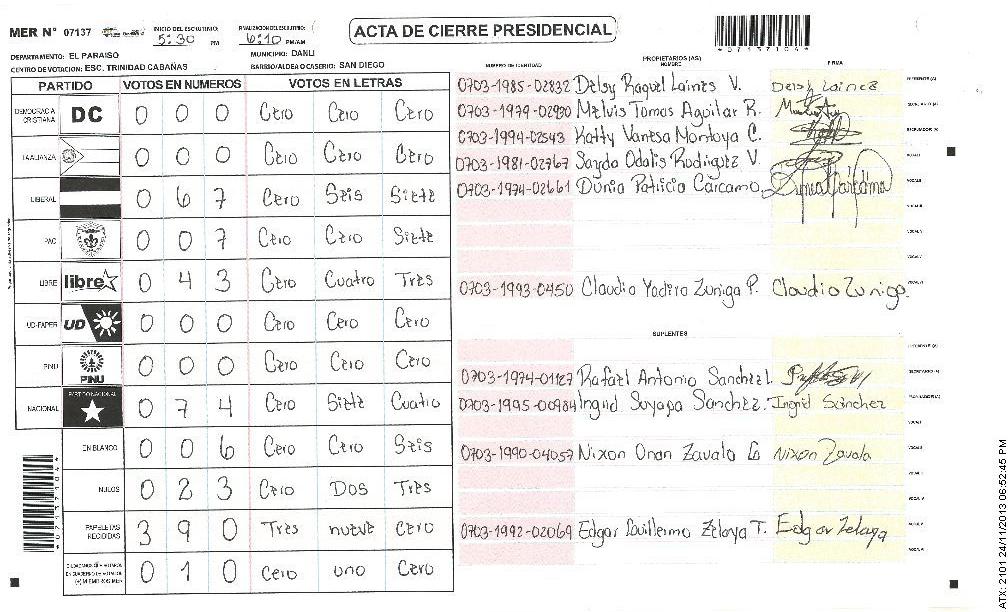 MER N° 07137
INICIO DEL ESCRUTINIO: 5:30 PM
FINALIZACION DEL ESCRUTINIO: 6:10 PM/AM
ACTA DE CIERRE PRESIDENCIAL
DEPARTAMENTO: EL PARAISO
MUNICIPIO: DANLI
CENTRO DE VOTACION: ESC. TRINIDAD CABAÑAS
BARRIO/ALDEA O CASERIO: SAN DIEGO
PARTIDO VOTOS EN NUMEROS VOTOS EN LETRAS
DEMOCRACIA CRISTIANA DC 0 0 0 Cero Cero Cero
LA ALIANZA 0 0 0 Cero Cero Cero
LIBERAL 0 6 7 Cero Seis Siete
PAC 0 0 7 Cero Cero Siete
LIBRE libre 0 4 3 Cero Cuatro Tres
UD-FAPER UD 0 0 0 Cero Cero Cero
PINU PINU 0 0 0 Cero Cero Cero
NACIONAL PARTIDO NACIONAL 0 7 4 Cero Siete Cuatro
EN BLANCO 0 0 6 Cero Cero Seis
NULOS 0 2 3 Cero Dos Tres
PAPELETAS RECIBIDAS 3 9 0 Tres nueve Cero
0 1 0 Cero uno Cero
NUMERO DE IDENTIDAD PROPIETARIOS (AS) NOMBRE FIRMA
0703-1985-02832 Delsy Raquel Laines V. Delsy Laines
0703-1979-02920 Melvis Tomas Aguilar R.
0703-1994-02543 Katty Vanesa Montoya C.
0703-1981-02767 Sayda Odalis Rodriguez V.
0703-1974-02661 Dunia Patricia Carcamo Dunia Carcamo
0703-1993-0450 Claudia Yadira Zuniga P. Claudia Zuniga.
SUPLENTES
0703-1974-01127 Rafael Antonio Sanchez L
0703-1995-00984 Ingrid Suyapa Sanchez. Ingrid Sanchez
0703-1990-04057 Nixon Onan Zavala Nixon Zavala
0703-1992-02069 Edgar Guillermo Zelaya T. Edgar Zelaya
ATX: 2101 24/11/2013 06:52:45 PM